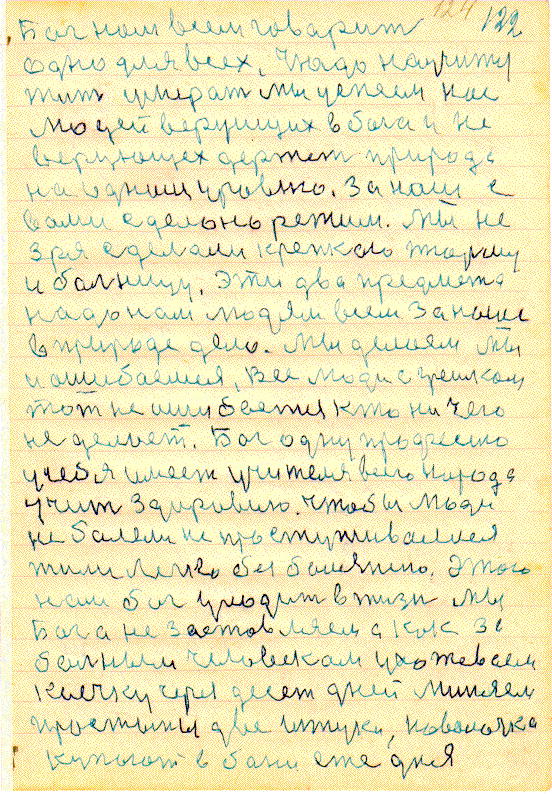 124 122
Бог нам всем говарит
одно для всех. Надо научиту
жит умерат мы успеем нас
людей верущих в бога и не
верующех держет природа
на одным уровлю. За нами с
вами сделоно режим. Мы не
зря сделали крепкаю тюрму
и балницу. Эти два предмета
надо нам людям всем за наше
в природе дело. Мы делаем мы
и ашибаемся, все люди с грешком
тот не ошибается кто ни чего
не делает. Бог одну професию
у себя имеет учителя всего народа
учит здоровию. Чтобы люди
не балели не простуживаллися
жили легко без болезнию. Этого
нам бог уходит в жизн мы
Бога не заставляем а как за
больным человеком ухожеваем
коечку через десет дней миняем
простыни две штуки, наволочка
купают в бани еже дня